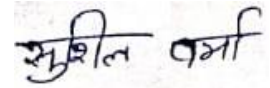 सुशील वर्मा